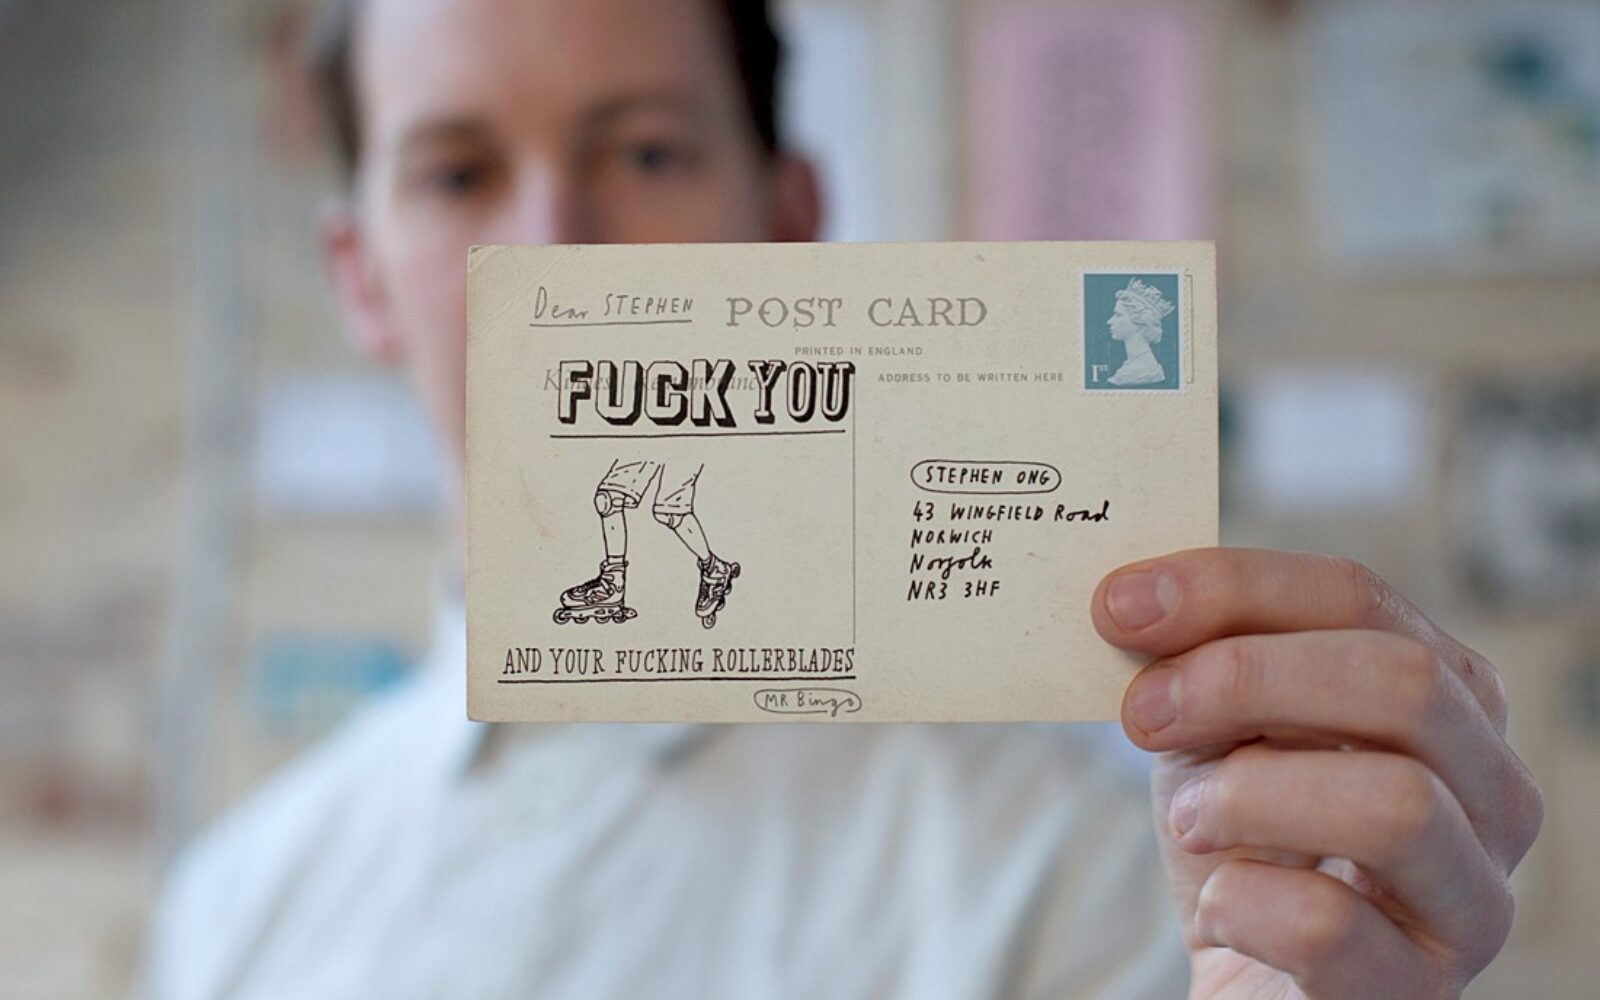 Dear STEPHEN
POST CARD
PRINTED IN ENGLAND
FUCK YOU
ADDRESS TO BE WRITTEN HERE
1ST
STEPHEN ONG
43 WINGFIELD Road
NORWICH
Norfolk
NR3 3HF
AND YOUR FUCKING ROLLERBLADES
MR Bingo